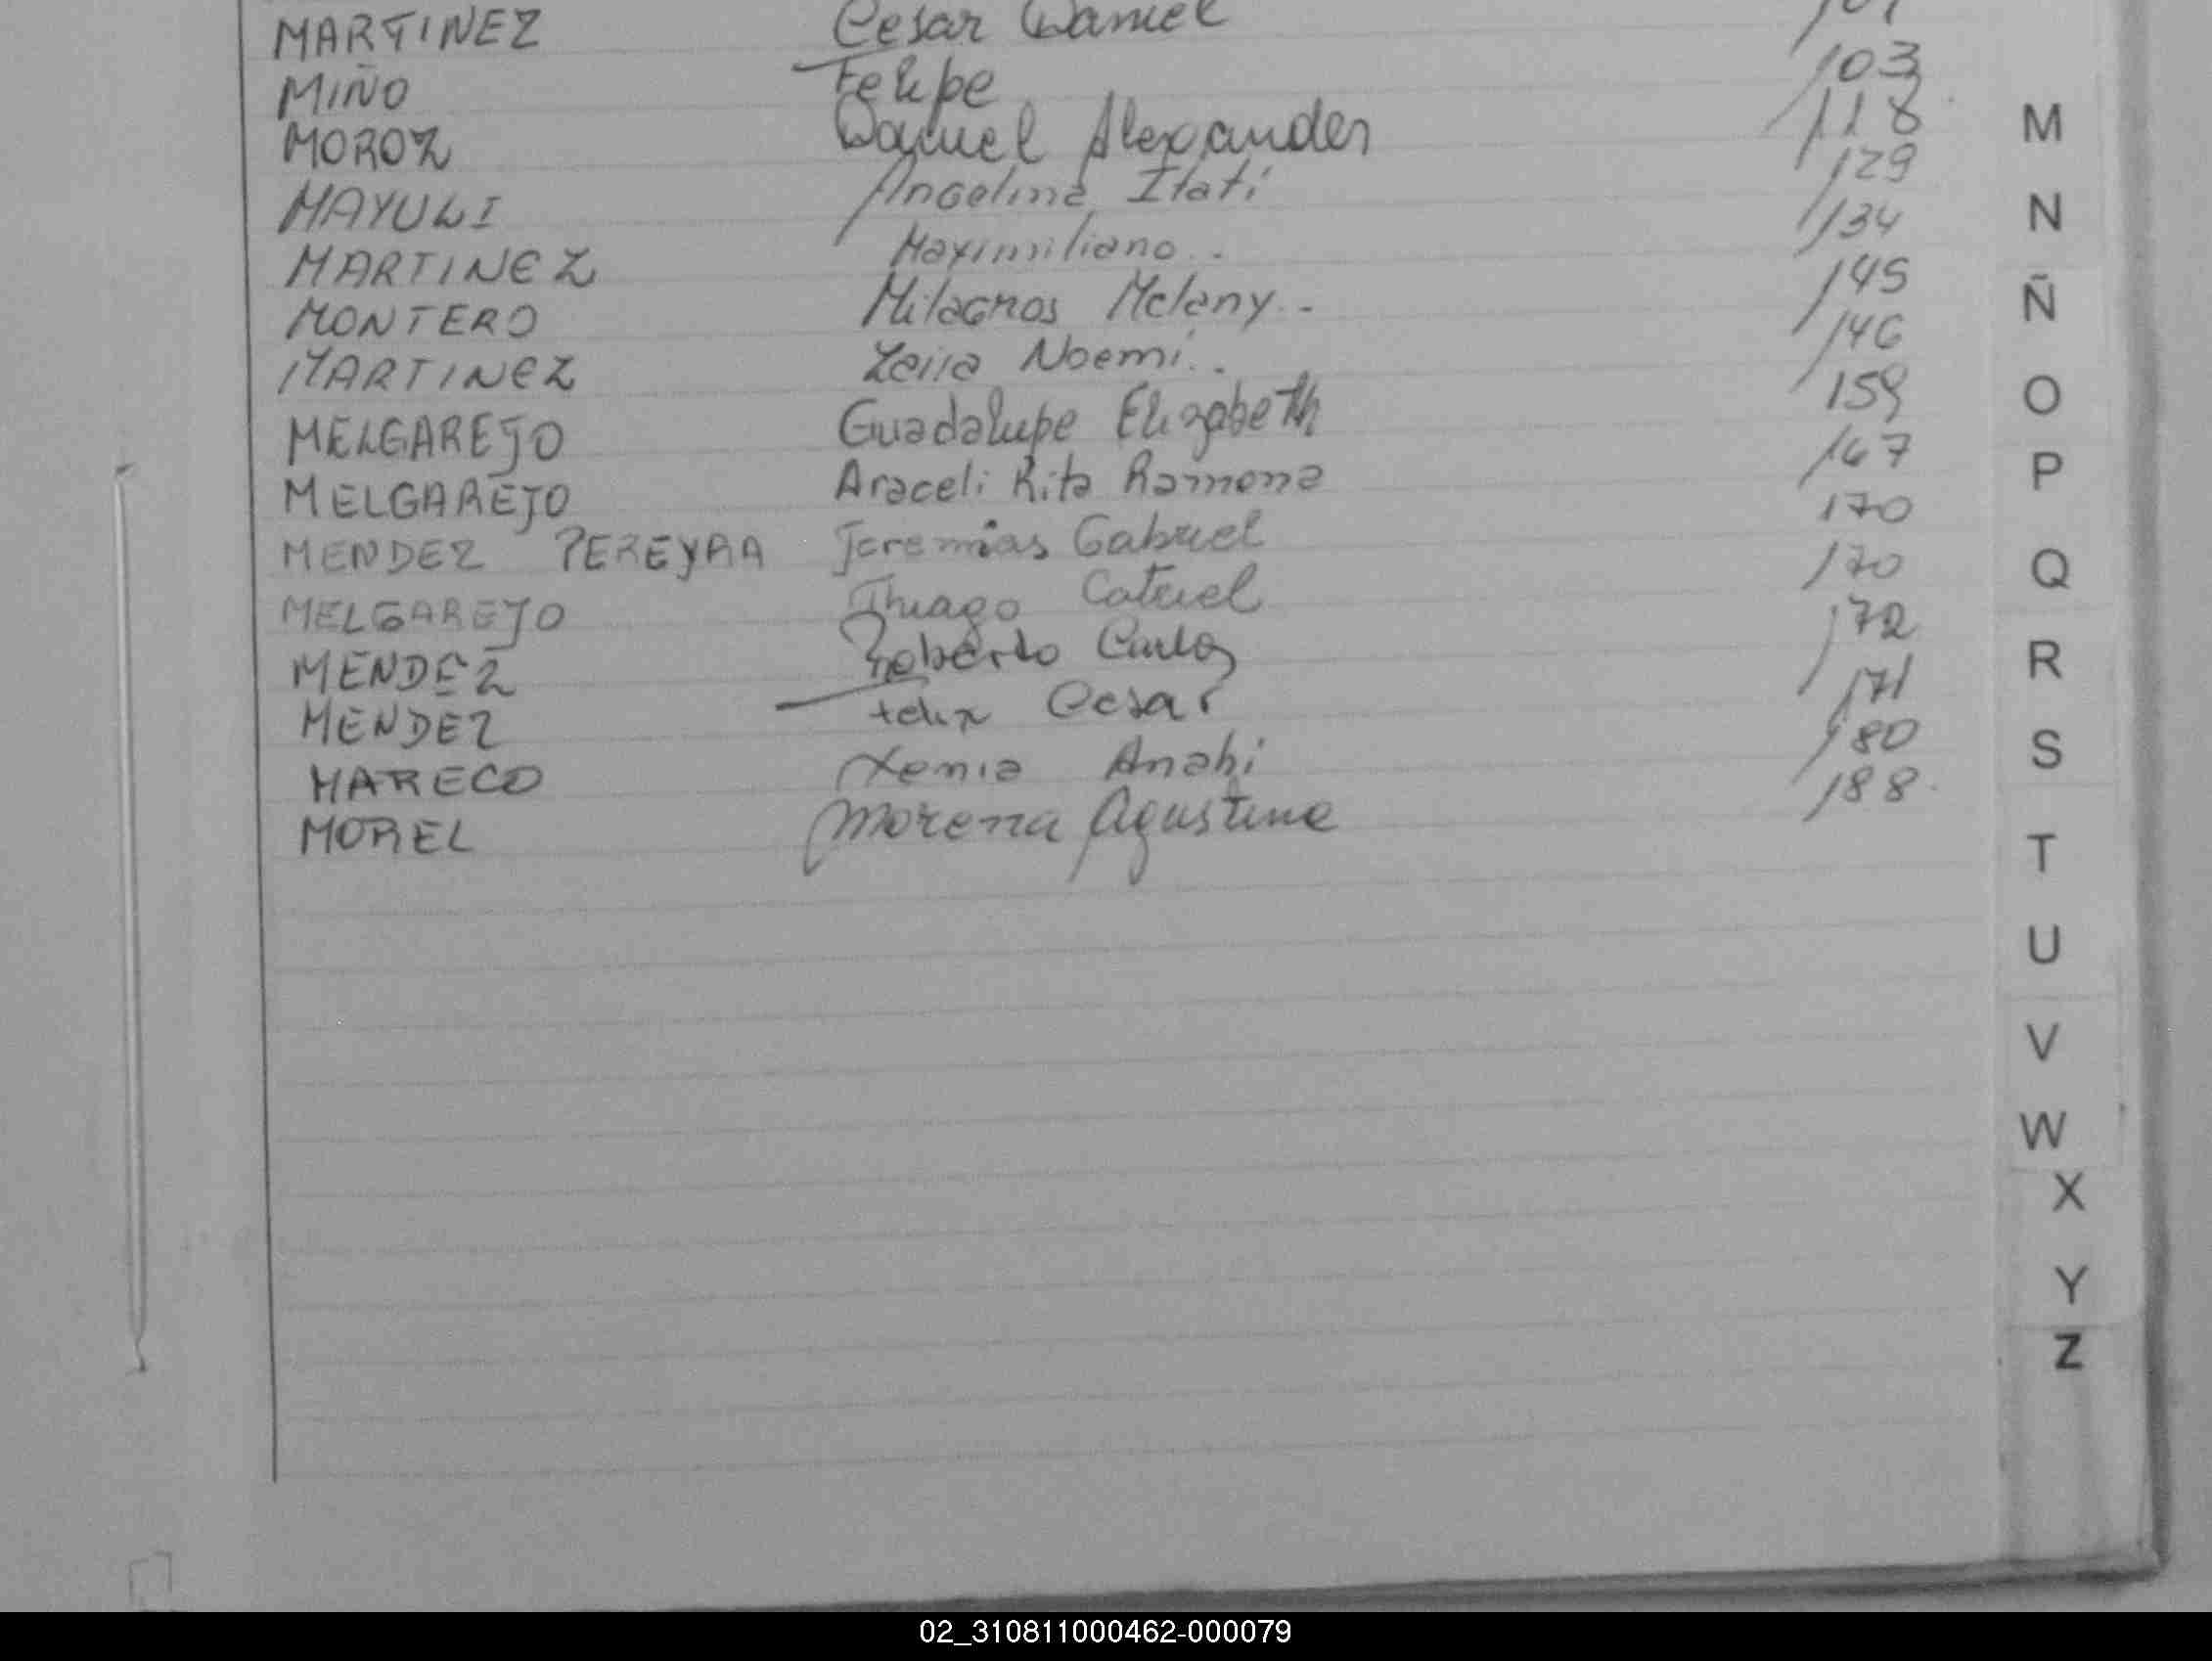 MARTINEZ Cesar Daniel 101
MIÑO Felipe 103
MOROZ Daniel Alexander 118
MAYULI Angelina Itati 129
MARTINEZ Maximiliano.. 134
MONTERO Milagros Melany.. 145
MARTINEZ Noemi.. 146
MELGAREJO Guadalupe Elizabeth 159
MELGAREJO Araceli Rita Ramona 167
MENDEZ PEREYRA Jeremias Gabriel 170
MELGAREJO Thiago Catriel 170
MENDEZ Roberto Carlos 172
MENDEZ Felix Cesar 171
MARECO Xenia Anahi 180
MOREL Morena Agustina 188
M
N
Ñ
O
P
Q
R
S
T
U
V
W
X
Y
Z
02_310811000462-000079